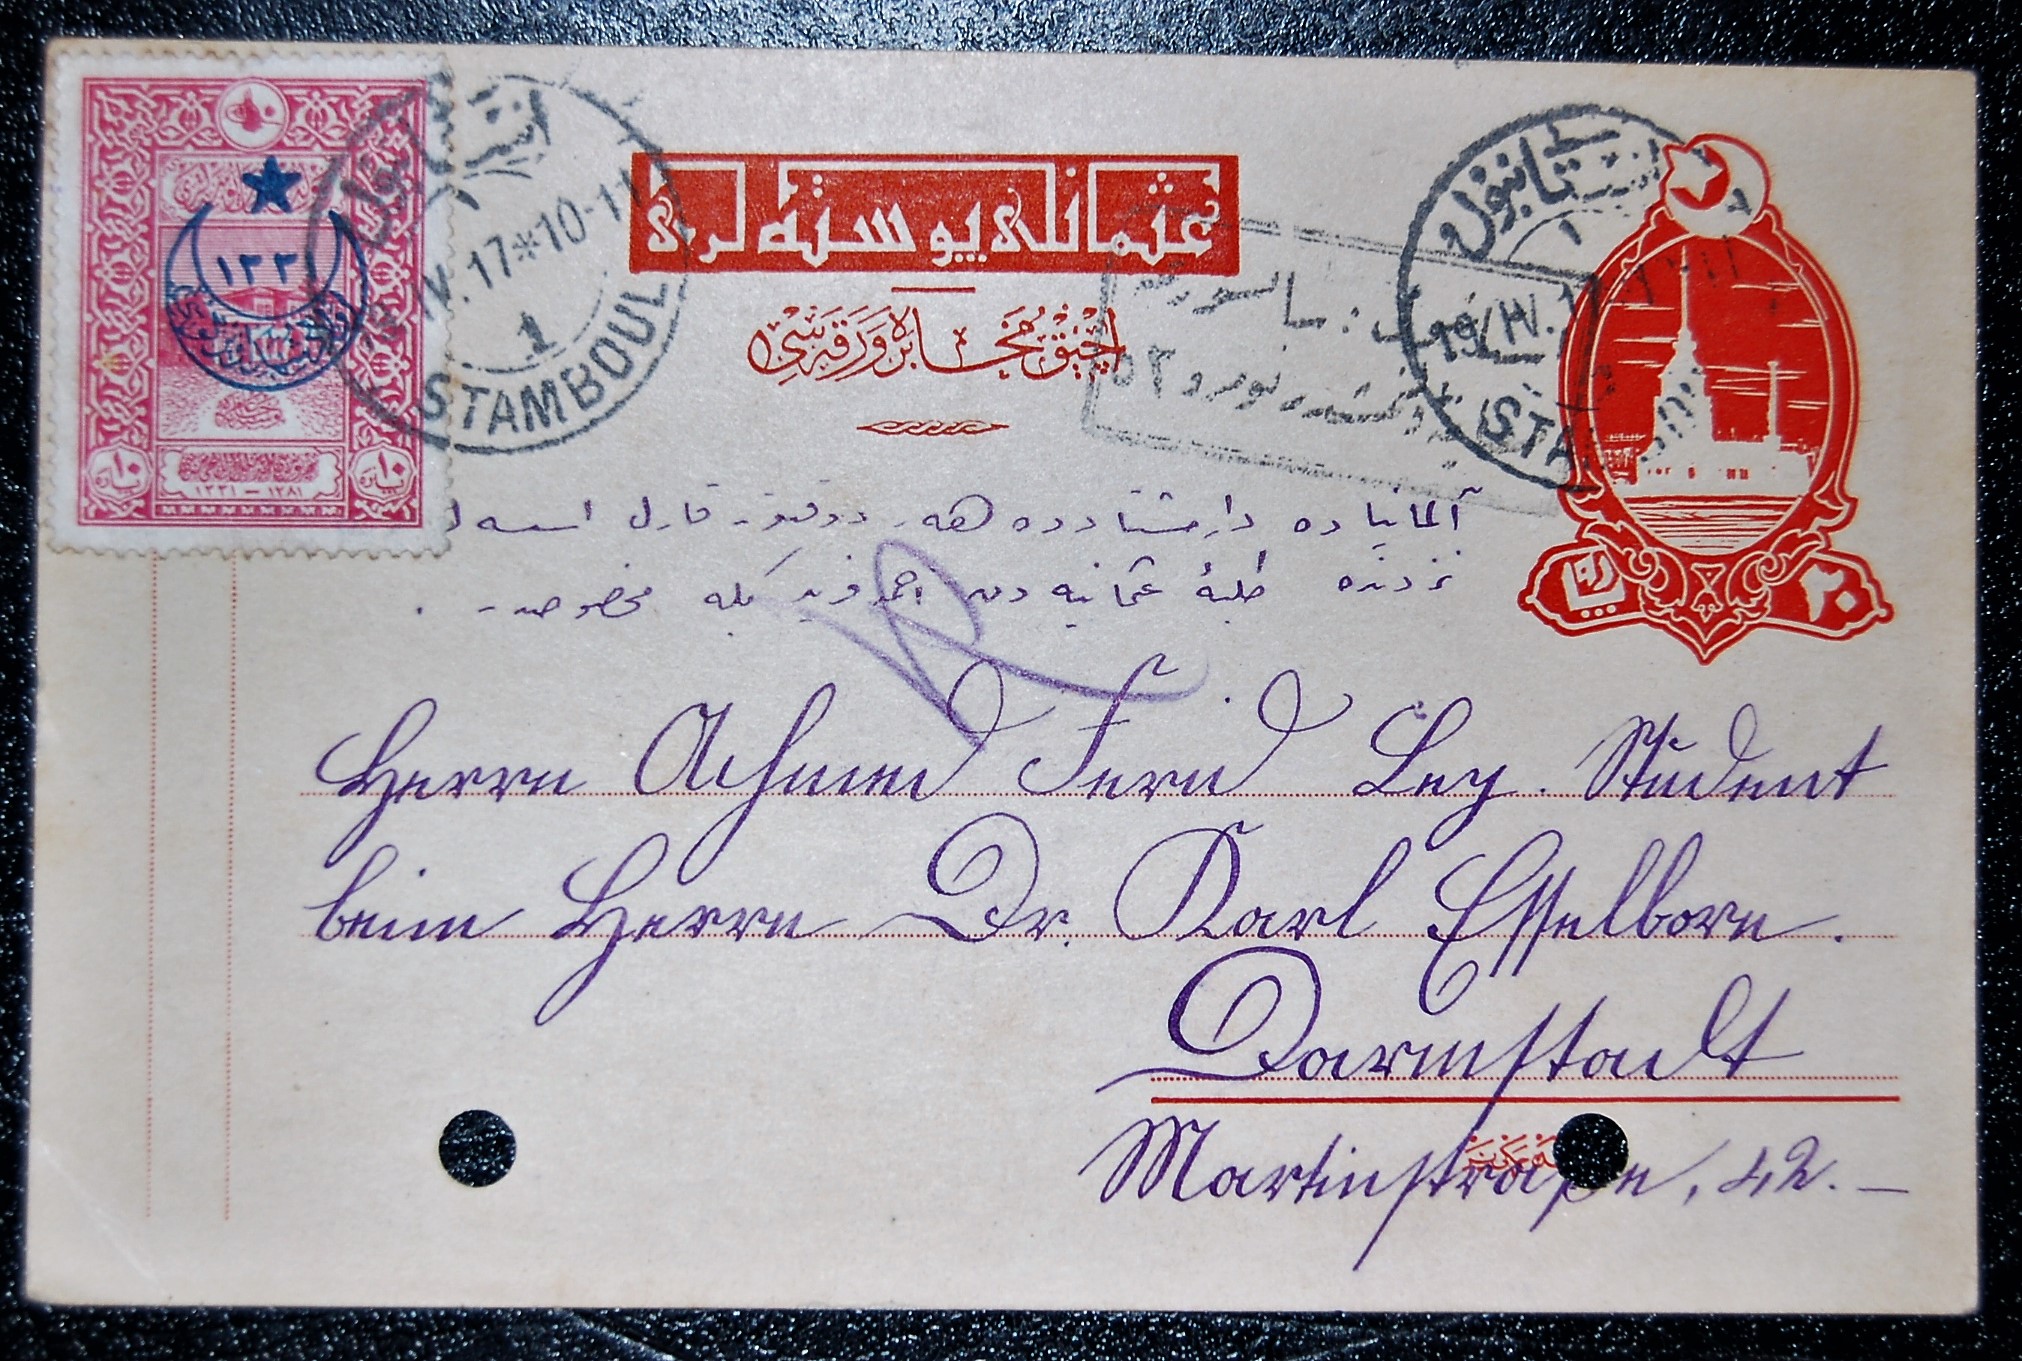 عثمانلی پوسته لری
آچیق مخابره ورقه سی
١٣٣١ — ١٢٨١
١٠
١٠
١٣٣
استانبول
IV.17*10-11
1
STAMBOUL
استانبول
١
19 IV.17
STA
٢٠
پاره
آلمانیاده دارمشتادده هر دوقتور قارل اسه ل
نزدنده طلبۀ عثمانیه دن احمد فرید بكه مخصوصدر.
R
Herrn Achmed Ferid Bey. Student
beim Herrn Dr. Karl Esselborn.
Darmstadt
Martinstraße, 42. —